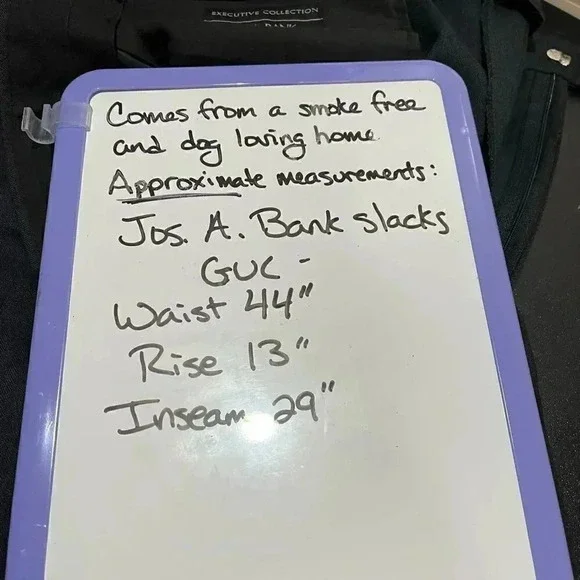 EXECUTIVE COLLECTION
Comes from a smoke free
and dog loving home.
Approximate measurements:
Jos. A. Bank slacks
GUC -
Waist 44"
Rise 13"
Inseam 29"